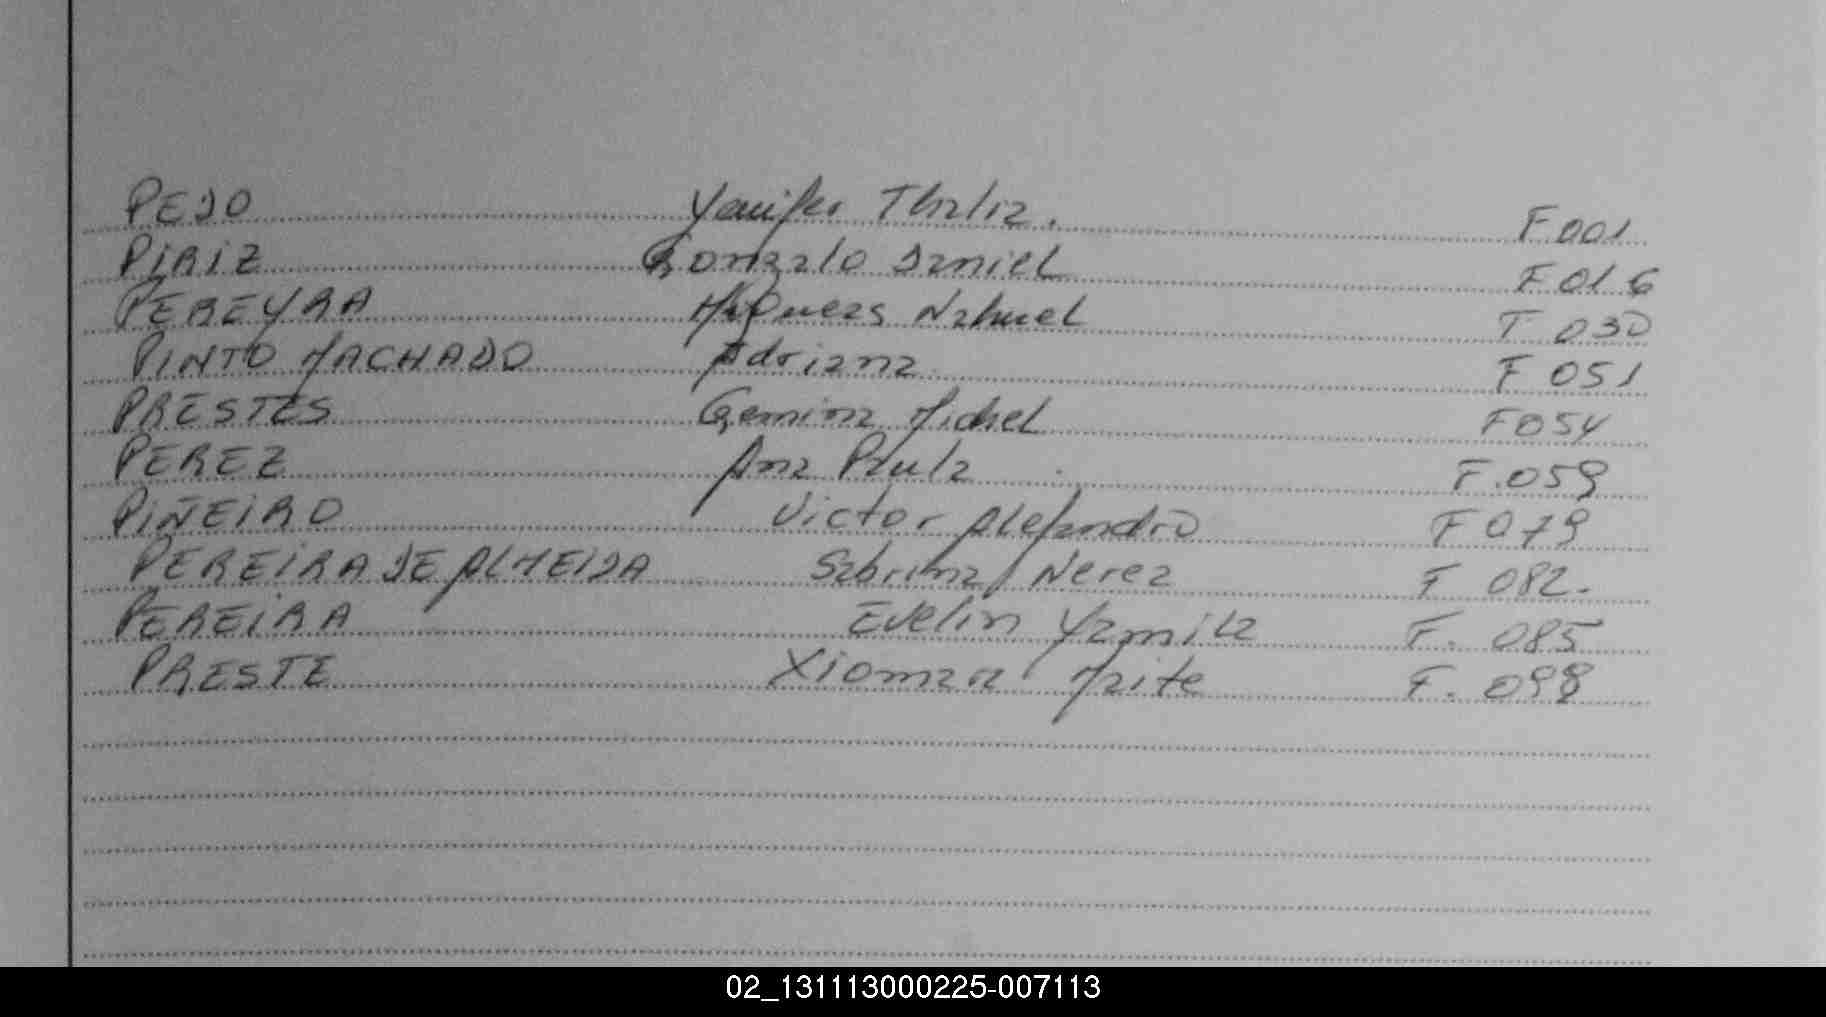 PEDO Yenifer Thalia. F001
PIRIZ Gonzalo Daniel F016
PEREYRA Nahuel F 030
PINTO MACHADO Adriana F 051
PRESTES Gemina Michel F054
PEREZ Ana Paula F.059
PIÑEIRO Victor Alejandro F 079
PEREIRA DE ALMEIDA Sabrina Nerea F 082.
PEREIRA Evelin Yamila F. 085
PRESTE Xiomara Maite F. 098
02_131113000225-007113